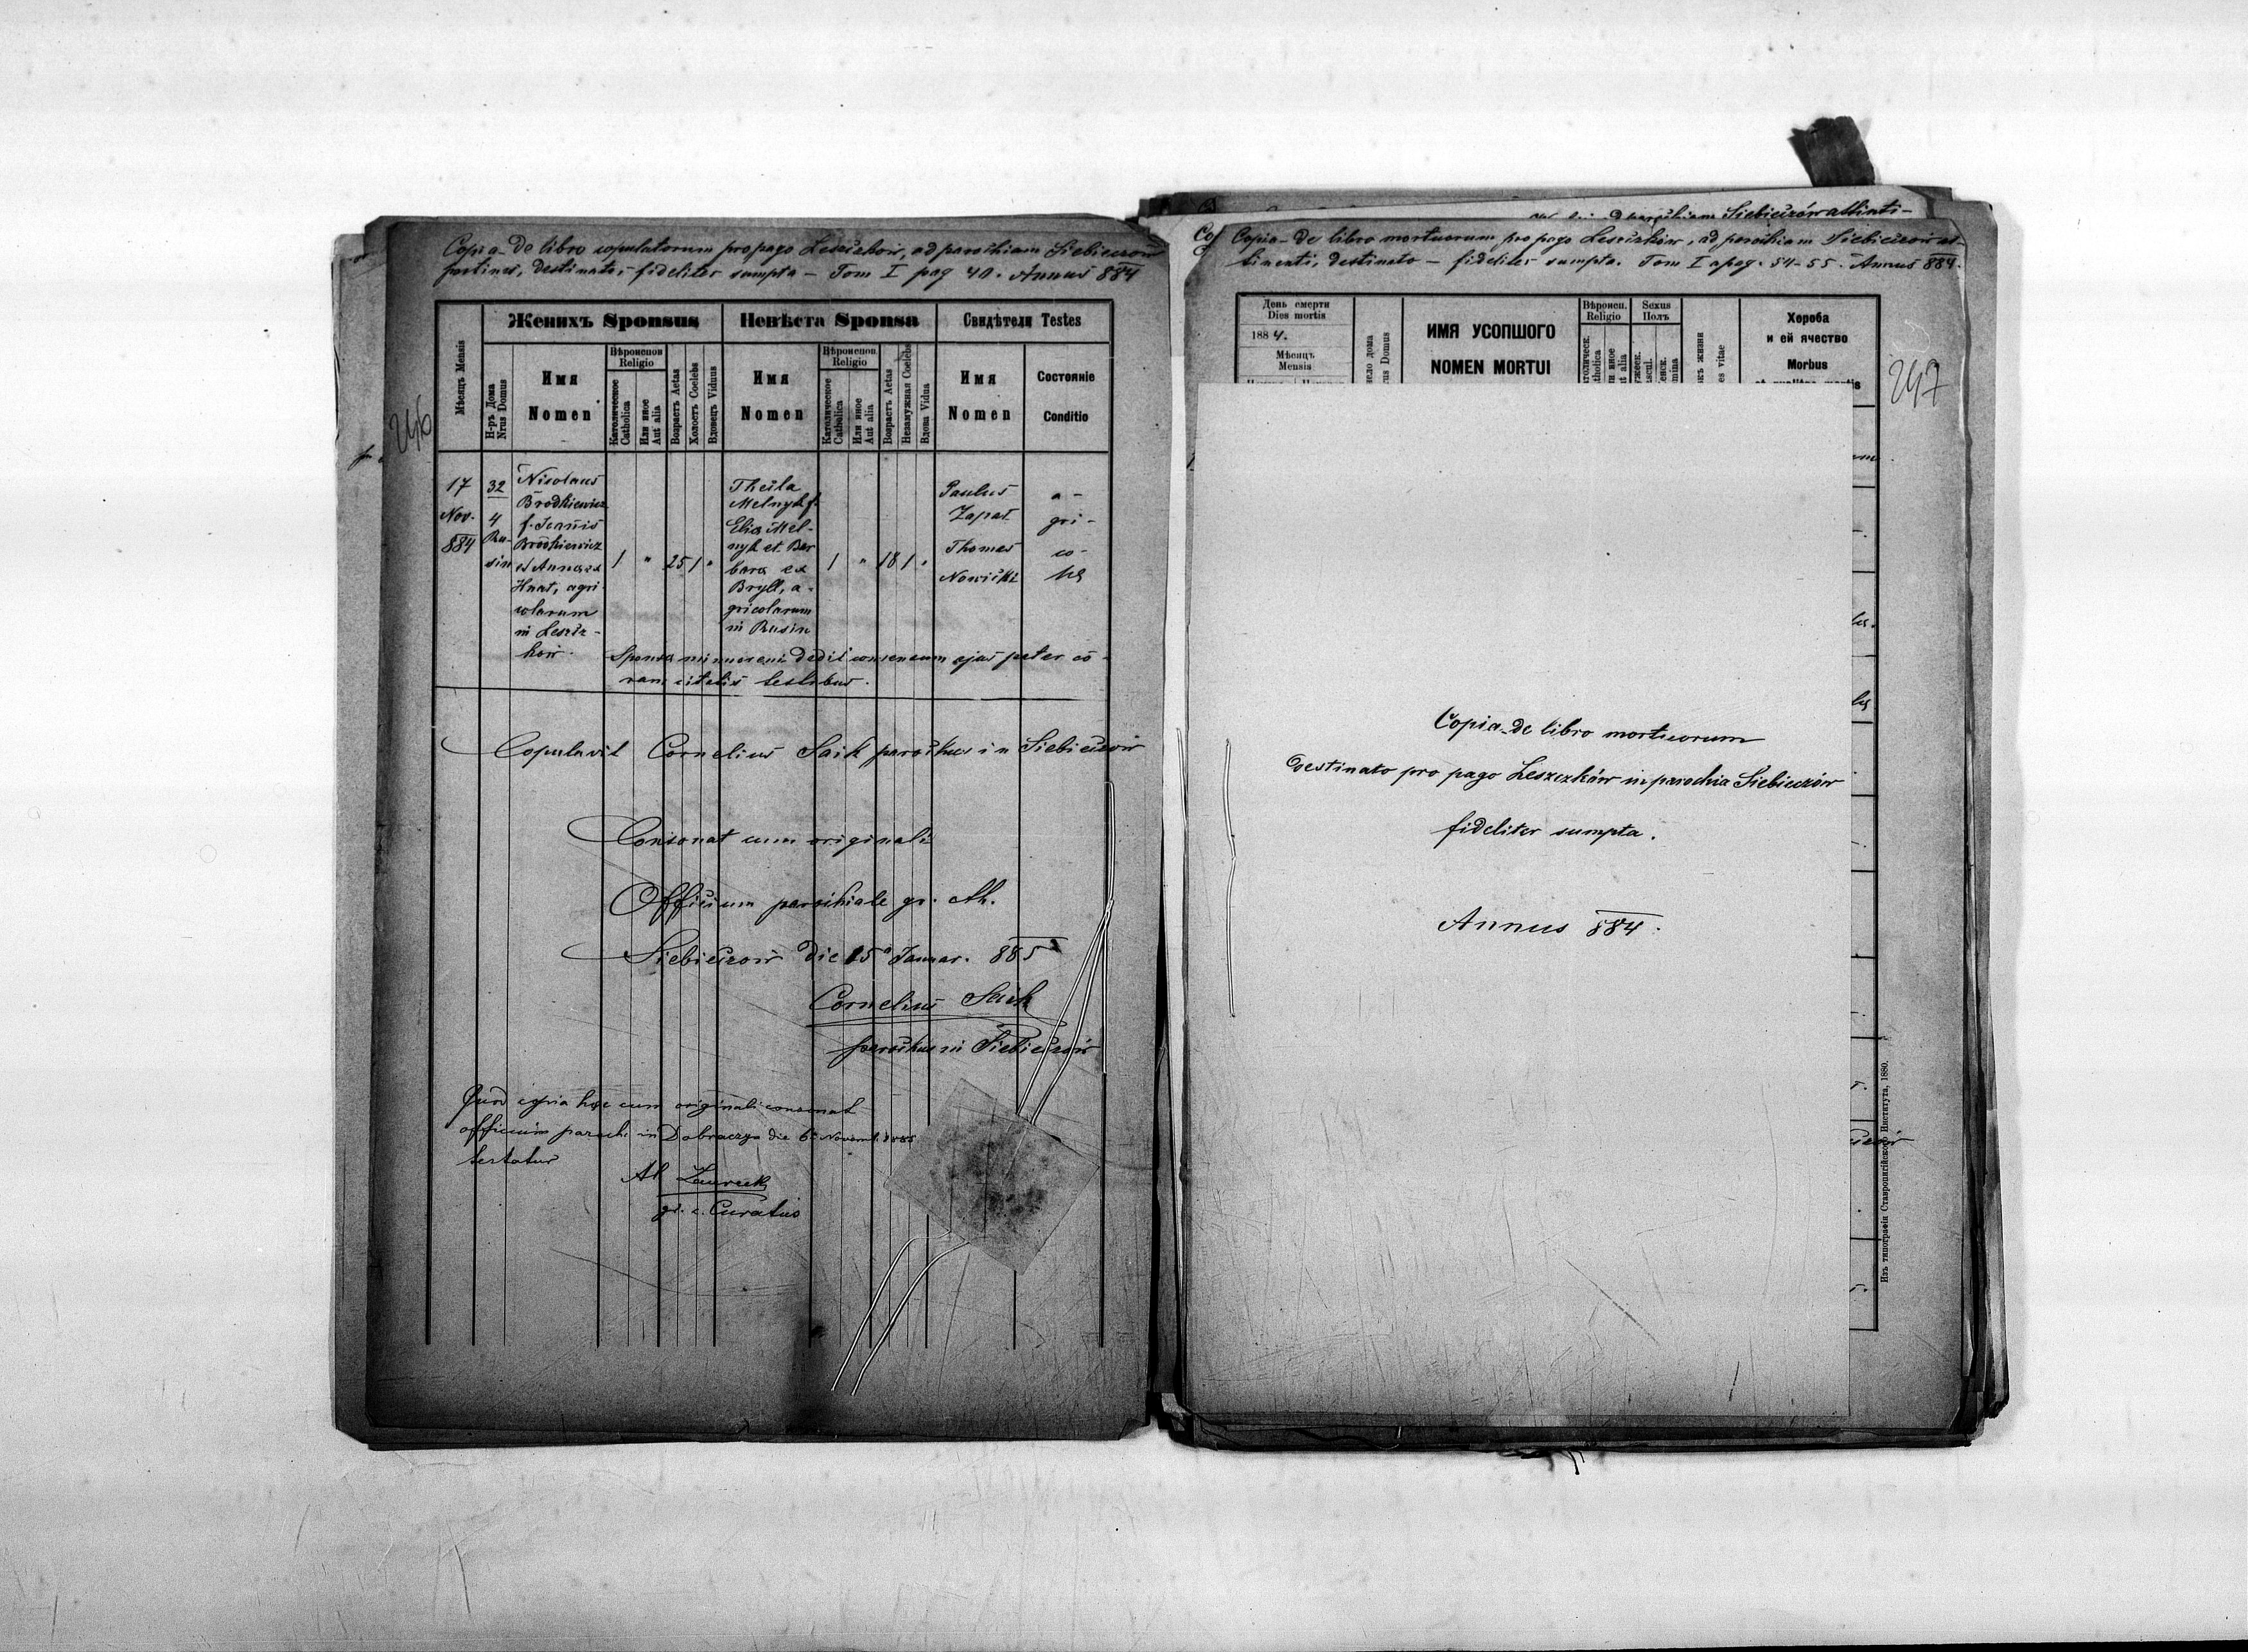 Copia de libro copulatorum pro pago Leszczków, ad parochiam Siebieczów
pertines, destinato, fideliter sumpta – Tom I pag 40. Annus 884
246
Мѣсяцъ Mensis
Женихъ Sponsus
Невѣста Sponsa
Свидѣтели Testes
Н-ръ Дома
Nrus Domus
Имя
Nomen
Вѣроиспов.
Religio
Католическое
Catholica
Или иное
Aut alia
Возрастъ Aetas
Холостъ Coelebs
Вдовецъ Viduus
Имя
Nomen
Вѣроиспов.
Religio
Католическое
Catholica
Или иное
Aut alia
Возрастъ Aetas
Незамужная Coelebs
Вдова Vidua
Имя
Nomen
Состояніе
Conditio
17
Nov.
884
32
4
Ru-
sin
Nicolaus
Brodkiewicz
f. Joannis
Brodkiewicz
et Anna ex
Hnat, agri-
colarum
in Leszcz-
ków.
1 " 25 1 "
Thecla
Melnyk f.
Elia Mel-
nyk et Bar
bara ex
Bryll, a-
gricolarum
in Rusin
1 " 18 1 "
Paulus
Zapał
Thomas
Nowicki
a-
gri-
co-
lae
Sponsa minorenni dedit consensum ejus pater co-
ram citatis testibus.
Copulavit Cornelius Saik parochus in Siebieczów
Consonat cum originali
Officium parochiale gr. cth.
Siebieczów die 15a Januar. 885
Cornelius Saik
parochus in Siebieczów
Quod copia haec cum originali consonat
officium paroch. in Dobraczyn die 6 Novemb. 1885
testatur
gr. c. Curatus
Siebieczów attinenti-
Copia de libro mortuorum pro pago Leszczków, ad parochiam Siebieczów at-
tinenti, destinato – fideliter sumpta. Tom I apag. 54-55. Annus 884.
247
День смерти
Dies mortis
1884.
Мѣсяцъ
Mensis
ИМЯ УСОПШОГО
NOMEN MORTUI
Вѣроисп.
Religio
Sexus
Полъ
Хороба
и ей ячество
Morbus
Copia de libro mortuorum
destinato pro pago Leszczków in parochia Siebieczów
fideliter sumpta.
Annus 884.
Изъ типографіи Ставропигійского Института, 1880.